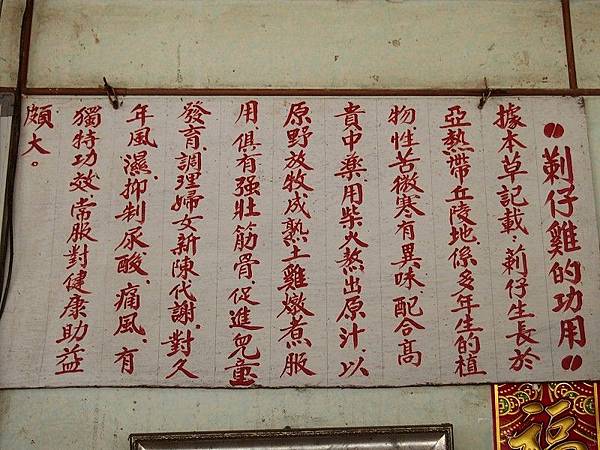 〃莿仔雞的功用〃
據本草記載:莿仔生長於
亞熱帶丘陵地.係多年生的植
物性苦微寒有異味.配合高
貴中藥用柴火熬出原汁.以
原野放牧成熟土雞燉煮服
用.俱有强壯筋骨.促進兒童
發育.調理婦女新陳代謝.對久
年風濕.抑制尿酸.痛風.有
獨特功效.常服對健康助益
頗大。
福